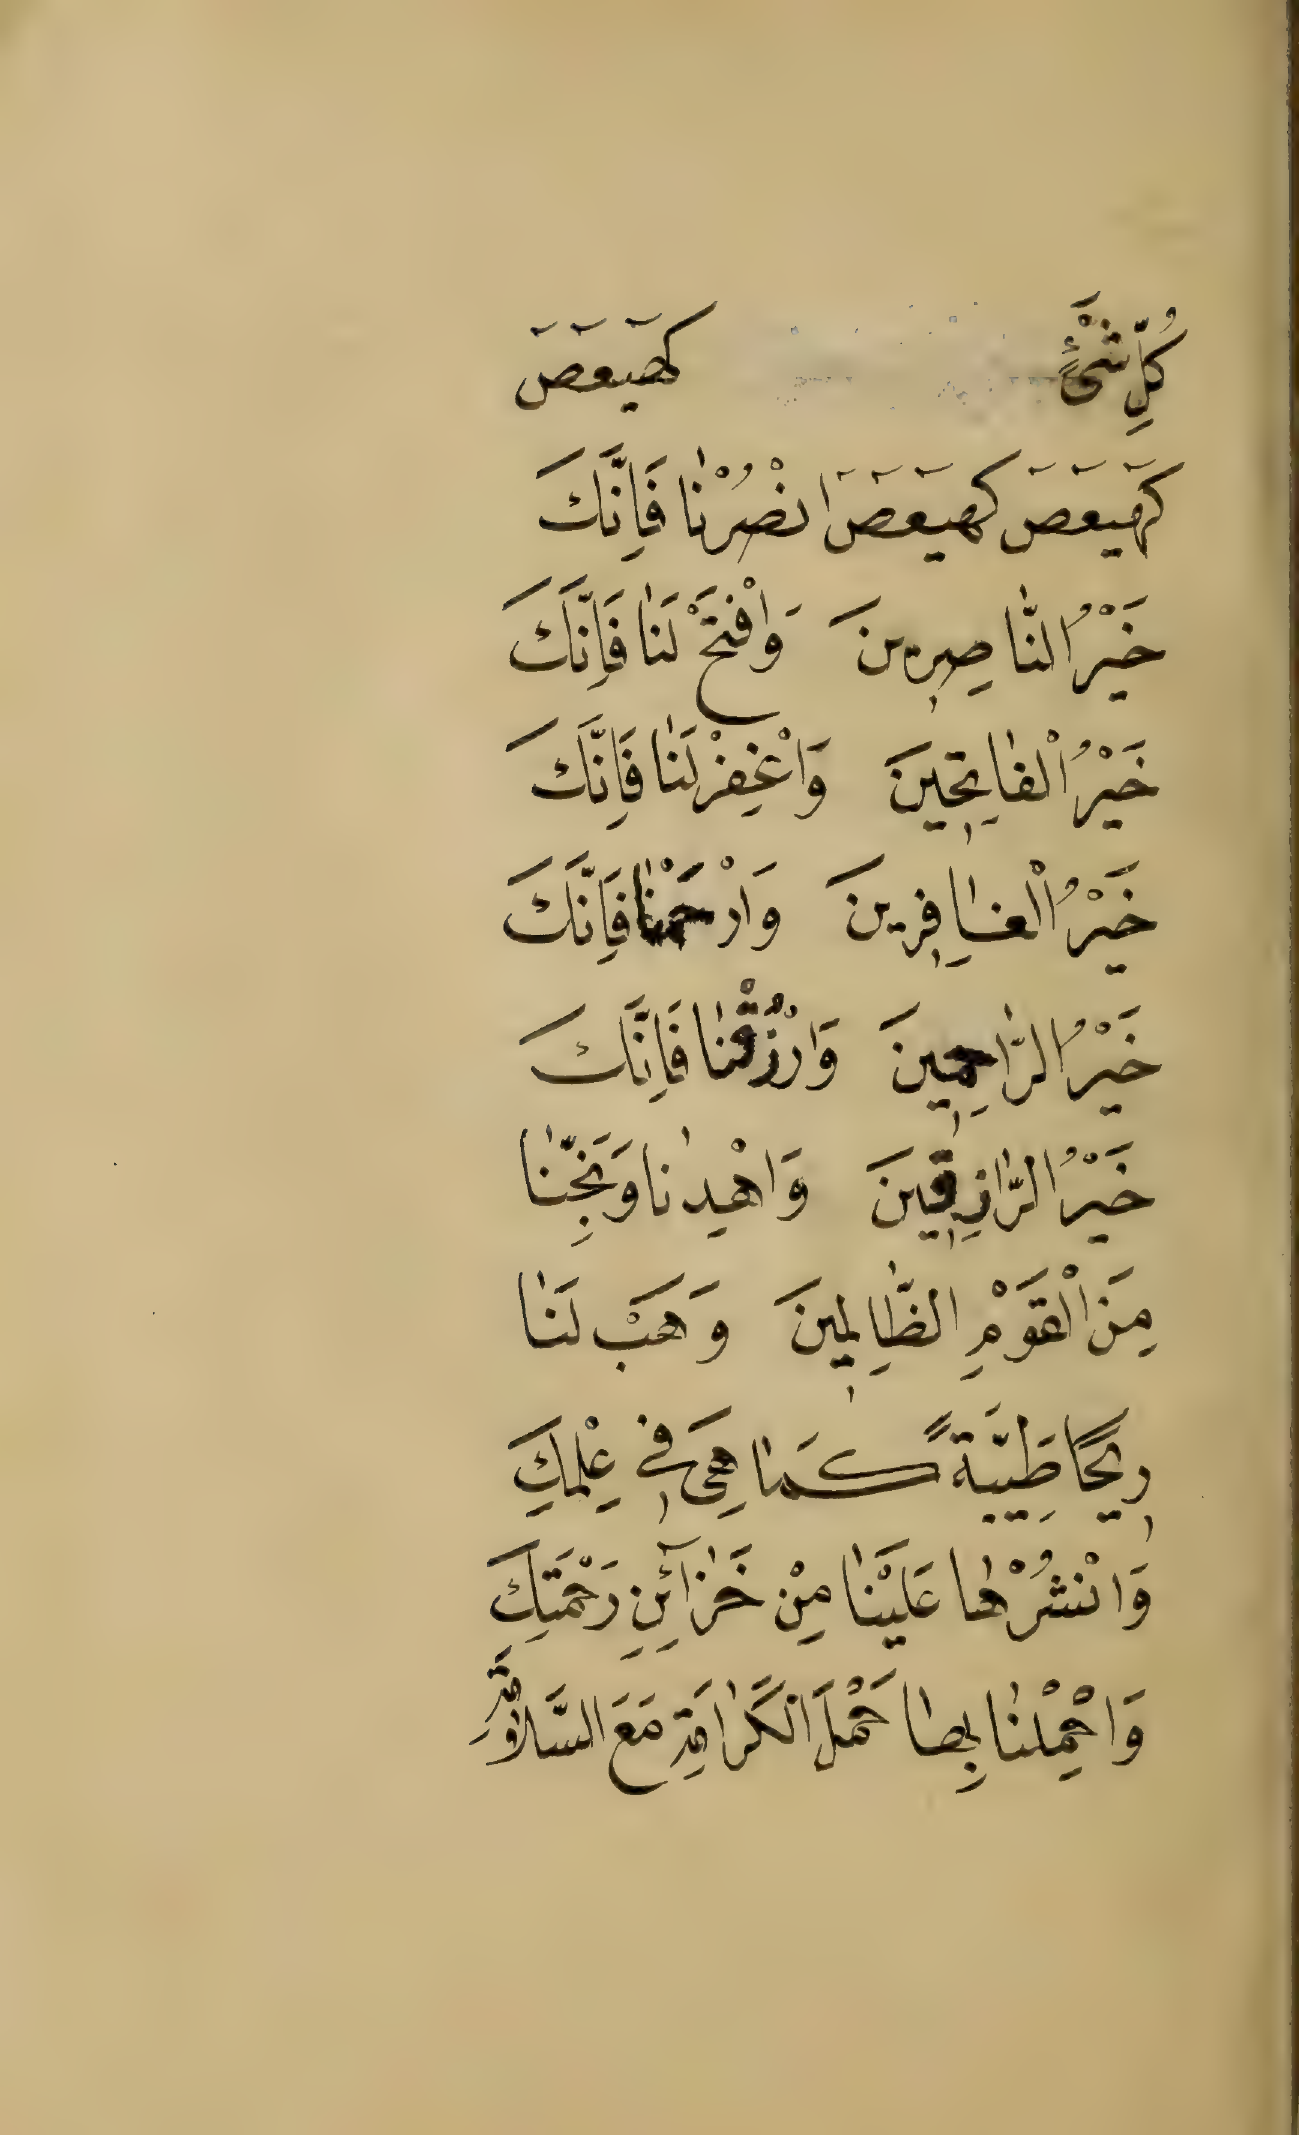 كُلِّ شَىْءٍ كٓهيٓعٓصٓ
كٓهيٓعٓصٓ كٓهيٓعٓصٓ انْصُرْنٰا فَاِنَّكَ
خَيْرُ النّٰاصِرٖينَ وَافْتَحْ لَنٰا فَاِنَّكَ
خَيْرُ الْفٰاتِحٖينَ وَاغْفِرْ لَنٰا فَاِنَّكَ
خَيْرُ الْغٰافِرٖينَ وَارْحَمْنٰا فَاِنَّكَ
خَيْرُ الرّٰاحِمٖينَ وَارْزُقْنٰا فَاِنَّكَ
خَيْرُ الرّٰازِقٖينَ وَاهْدِنٰا وَنَجِّنٰا
مِنَ الْقَوْمِ الظّٰالِمٖينَ وَهَبْ لَنٰا
رٖيحًا طَيِّبَةً كَمٰا هِىَ فٖى عِلْمِكَ
وَانْشُرْهٰا عَلَيْنٰا مِنْ خَزٰآئِنِ رَحْمَتِكَ
وَاحْمِلْنٰا بِهٰا حَمْلَ الْكَرٰامَةِ مَعَ السَّلاٰمَةِ